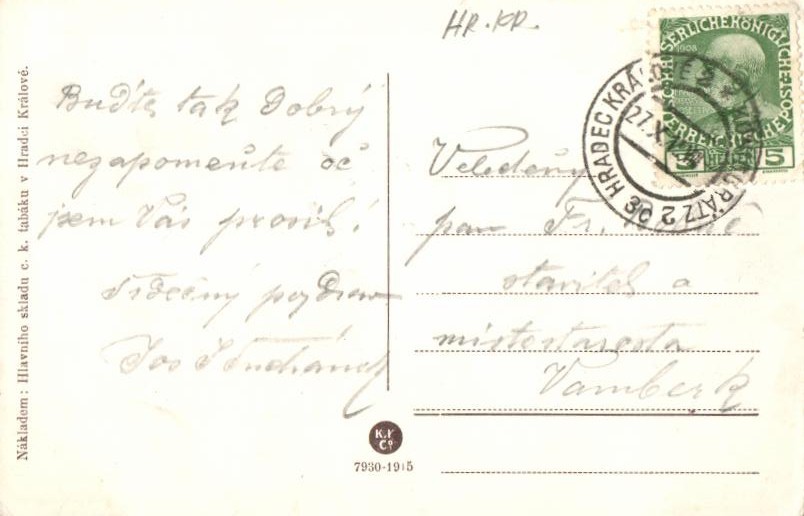 HR. KR.
KAISERLICHE KÖNIGLICHE ÖSTERREICHISCHE POST
1908
5 HELLER 5
HRADEC KRÁLOVÉ 2 * KÖNIGGRÄTZ 2
27.X
Buďte tak Dobrý
nezapomeňte oč
jsem Vás prosil!
Srdečný pozdrav
Jos
Veleděný
pan Fr.
stavitel a
místostarosta
Vamberk
K.V Cº
7930-1915
Nákladem: Hlavního skladu c. k. tabáku v Hradci Králové.